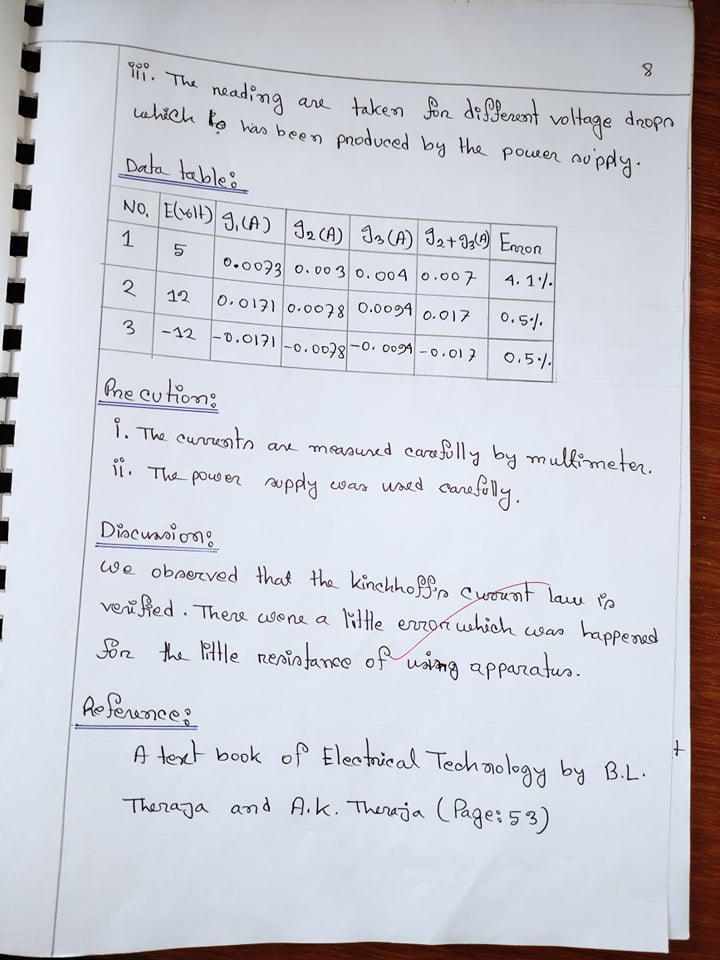 8
iii. The reading are taken for different voltage drops
which has been produced by the power supply.
Data table:
NO. E(volt) I₁(A) I₂(A) I₃(A) I₂+I₃(A) Error
1 5 0.0073 0.003 0.004 0.007 4.1%
2 12 0.0171 0.0078 0.0094 0.017 0.5%
3 -12 -0.0171 -0.0078 -0.0094 -0.017 0.5%
Precution:
i. The currents are measured carefully by multimeter.
ii. The power supply was used carefully.
Discussion:
We observed that the kirchhoff's current law is
verified. There were a little error which was happened
for the little resistance of using apparatus.
Reference:
A text book of Electrical Technology by B.L.
Theraja and A.K. Theraja (Page: 53)